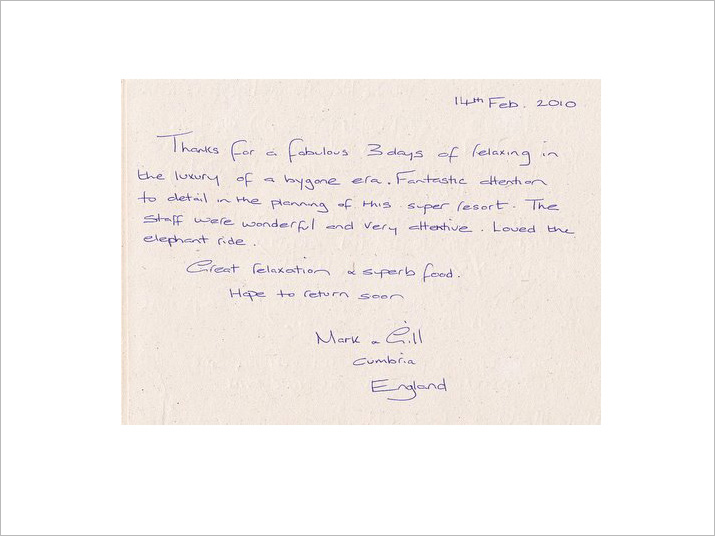 14th Feb. 2010
Thanks for a fabulous 3 days of relaxing in
the luxury of a bygone era. Fantastic attention
to detail in the planning of this super resort. The
staff were wonderful and very attentive. Loved the
elephant ride.
Great relaxation & superb food.
Hope to return soon
Mark & Gill
Cumbria
England